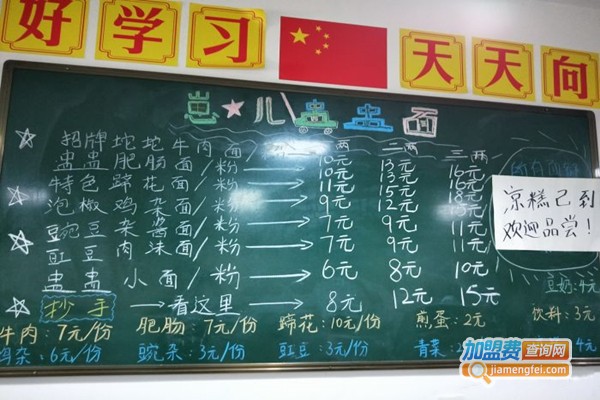 好学习 天天向
崽★儿 盅盅面
一两 二两 三两
招牌坨坨牛肉面/粉 10元 13元 16元
盅盅肥肠面/粉→ 10元 13元 16元
特色蹄花面/粉→ 11元 15元 18元
泡椒鸡杂面/粉→ 9元 12元 15元
豌豆杂酱面/粉→ 7元 9元 11元
豇豆肉沫面/粉→ 7元 9元 11元
盅盅小面/粉→ 6元 8元 10元
抄手→看这里→ 8元 12元 15元
凉糕已到
欢迎品尝!
豆奶:4元
牛肉:7元/份 肥肠:7元/份 蹄花:10元/份 煎蛋:2元 饮料:3元
鸡杂:6元/份 豌杂:3元/份 豇豆:3元/份 青菜: 4元
加盟费查询网
jiamengfei.com